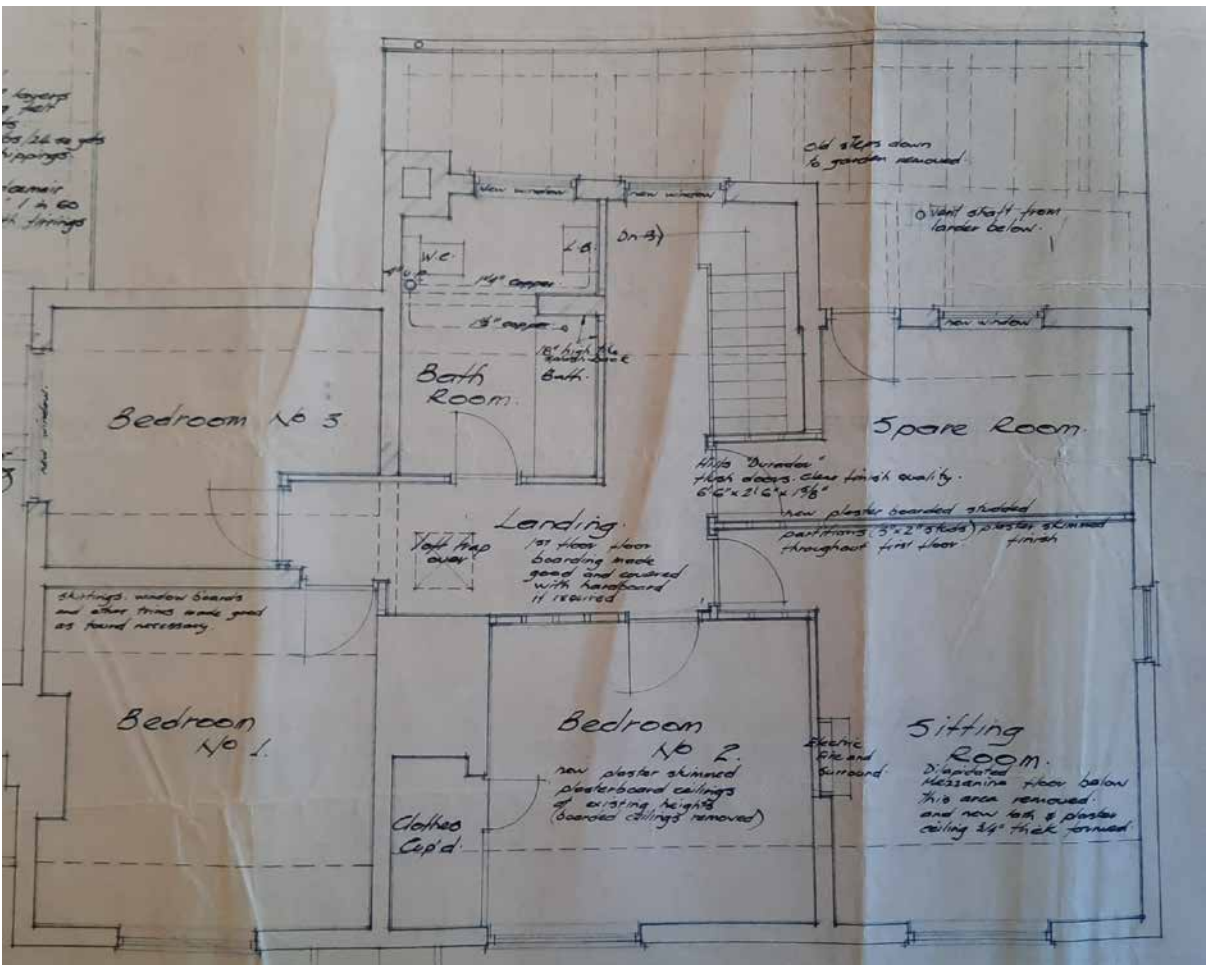 layers
felt
1 in 60
firrings
Old steps down
to garden removed.
new window
new window
vent shaft from
larder below.
Dn
W.C.
L.B.
1¼" copper.
1½" copper
new window
Bath.
Bath
Room.
Bedroom No 3
new window
Spare Room.
flush doors. clear finish quality.
6'6" x 2'6" x 1⅜"
new plaster boarded studded
partitions (3" x 2" studs) plaster skimmed
throughout first floor finish
Landing.
1st floor floor
boarding made
good and covered
with hardboard
if required
loft trap
over
skirtings. window boards
and other trims made good
as found necessary.
Bedroom
No 1.
Bedroom
No 2.
new plaster skimmed
plasterboard ceilings
at existing heights
(boarded ceilings removed)
Clothes
Cup'd.
Electric
fire and
surround.
Sitting
Room.
Dilapidated
Mezzanine floor below
this area removed.
and new lath & plaster
ceiling ¾" thick formed